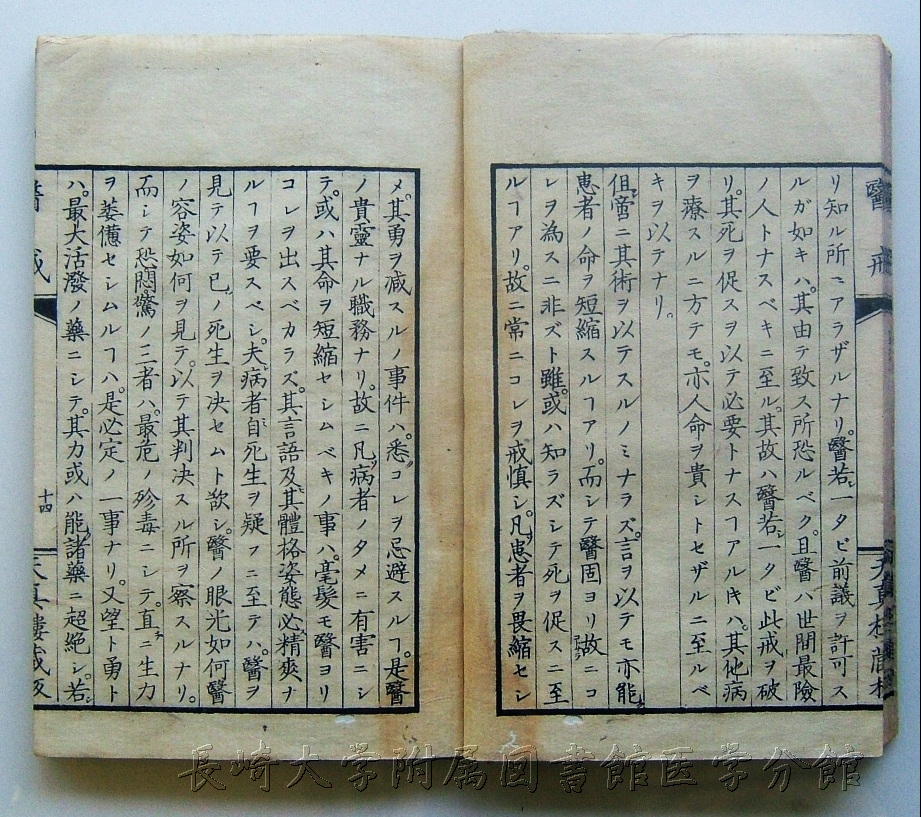 醫戒
リ知ル所ニアラザルナリ。醫若一タビ前議ヲ許可ス
ルガ如キハ。其由テ致ス所恐ルベク。且醫ハ世間最險
ノ人トナスベキニ至ル。其故ハ醫若シ一タビ此戒ヲ破
リ。其死ヲ促スヲ以テ必要トナスヿアルキハ。其他病
ヲ療スルニ方テモ。亦人命ヲ貴シトセザルニ至ルベ
キヲ以テナリ。
但啻ニ其術ヲ以テスルノミナラズ。言ヲ以テモ亦能
患者ノ命ヲ短縮スルヿアリ。而シテ醫固ヨリ故ニコ
レヲ為スニ非ズト雖。或ハ知ラズシテ死ヲ促スニ至
ルヿアリ。故ニ常ニコレヲ戒慎シ。凡患者ヲ畏縮セシ
メ。其勇ヲ減スルノ事件ハ。悉コレヲ忌避スルヿ。是醫
ノ貴靈ナル職務ナリ。故ニ凡病者ノタメニ有害ニシ
テ。或ハ其命ヲ短縮セシムベキノ事ハ。毫髮モ醫ヨリ
コレヲ出スベカラズ。其言語及其體格姿態必精爽ナ
ルヿヲ要スベシ。夫病者自死生ヲ疑フニ至テハ。醫ヲ
見テ以テ已ノ死生ヲ決セムト欲シ。醫ノ眼光如何醫
ノ容姿如何ヲ見テ。以テ其判决スル所ヲ察スルナリ。
而シテ恐悶驚ノ三者ハ。最危ノ殄毒ニシテ。直ニ生力
ヲ萎憊セシムルヿハ。是必定ノ一事ナリ。又望ト勇ト
ハ。最大活潑藥ニシテ。其力或ハ能諸藥ニ超絶シ。若
十四
長崎大学附属図書館医学分館